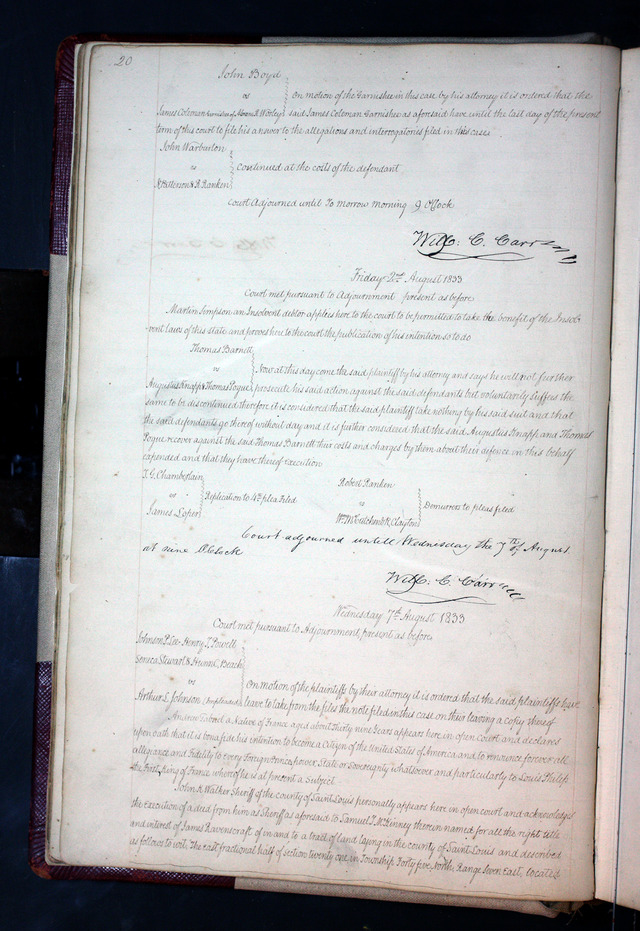 20
John Boyd
vs
James Coleman Garnishee of Abram R Wooley
On motion of the Garnishee in this case by his attorney it is ordered that the
said James Coleman Garnishee as aforesaid have until the last day of the present
term of this court to file his answer to the allegations and interrogatories filed in this case
John Warburton
vs
N Patterson & R. Ranken
Continued at the costs of the defendant
Court Adjourned until To morrow morning 9 OClock
Will: C. Carr
Friday 2nd August 1833
Court met pursuant to Adjournment present as before
Martin Simpson an Insolvent debtor applies here to the court to be permitted to take the benefit of the Insol-
vent laws of this State and proves here to the court the publication of his intention so to do
Thomas Barnett
vs
Augustus Knapp & Thomas Pogue
Now at this day come the said plaintiff by his attorney and says he will not further
prosecute his said action against the said defendants but voluntarily suffers the
same to be discontinued therefore it is considered that the said plaintiff take nothing by his said suit and that
the said defendants go thereof without day and it is further considered that the said Augustus Knapp and Thomas
Pogue recover against the said Thomas Barnett their costs and charges by them about their defence in this behalf
expended and that they have thereof execution
T. G. Chamberlain
vs
James Loper
Replication to 4th plea filed
Robert Ranken
vs
Wm
Clayton
Demurrer to pleas filed
Court adjourned untill Wednesday the 7th of August
at nine OClock
Will: C. Carr
Wednesday 7th August 1833
Court met pursuant to Adjournment, present as before
Johnson P. Lee Henry T. Powell
Seneca Stewart & Beach
vs
Arthur L Johnson (Impleaded)
On motion of the plaintiffs by their attorney it is ordered that the said plaintiffs have
leave to take from the files the note filed in this case on their leaving a copy thereof
Andrew a Native of France aged about thirty nine Years appears here in open Court and declares
upon oath that it is bona fide his intention to become a Citizen of the United States of America and to renounce forever all
allegiance and Fidelity to every Foreign Prince, power, State or Sovereignty whatsoever and particularly to Louis Philip
the First, King of France whereof he is at present a Subject
John K Walker Sheriff of the county of Saint Louis personally appears here in open court and acknowledges
the execution of a deed from him as Sheriff as aforesaid to Samuel T. McKinney therein named for all the right title
and interest of James Ravenscraft of in and to a tract of land laying in the county of Saint Louis and described
as follows to wit, The east fractional half of section twenty one in Township Forty five, North, Range Seven East, located